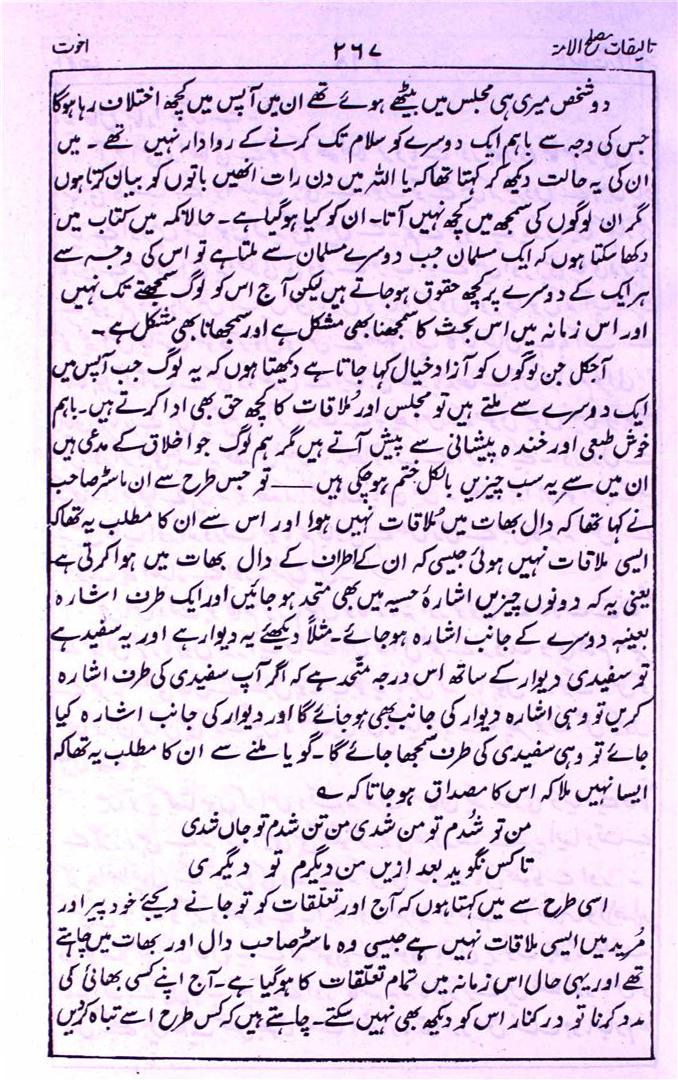 تالیفات مصلح الامۃ ۲۶۷ اخوت
دو شخص میری ہی مجلس میں بیٹھے ہوئے تھے ان میں آپس میں کچھ اختلاف رہا ہوگا
جس کی وجہ سے باہم ایک دوسرے کو سلام تک کرنے کے روادار نہیں تھے ۔ میں
ان کی یہ حالت دیکھ کر کہتا تھا کہ یا اللہ میں دن رات انھیں باتوں کو بیان کرتا ہوں
مگر ان لوگوں کی سمجھ میں کچھ نہیں آتا۔ ان کو کیا ہوگیا ہے۔ حالانکہ میں کتاب میں
دکھا سکتا ہوں کہ ایک مسلمان جب دوسرے مسلمان سے ملتا ہے تو اس کی وجہ سے
ہر ایک کے دوسرے پر کچھ حقوق ہوجاتے ہیں لیکن آج اس کو لوگ سمجھتے تک نہیں
اور اس زمانہ میں اس بحث کا سمجھنا بھی مشکل ہے اور سمجھانا بھی مشکل ہے۔
آجکل جن لوگوں کو آزاد خیال کہا جاتا ہے دیکھتا ہوں کہ یہ لوگ جب آپس میں
ایک دوسرے سے ملتے ہیں تو مجلس اور مُلاقات کا کچھ حق بھی ادا کرتے ہیں۔ باہم
خوش طبعی اور خندہ پیشانی سے پیش آتے ہیں مگر ہم لوگ جو اخلاق کے مدعی ہیں
ان میں سے یہ سب چیزیں بالکل ختم ہوچکی ہیں ـــــــ تو جس طرح سے ان ماسٹر صاحب
نے کہا تھا کہ دال بھات میں مُلاقات نہیں ہوا اور اس سے ان کا مطلب یہ تھا کہ
ایسی ملاقات نہیں ہوئی جیسی کہ ان کے اطراف کے دال بھات میں ہوا کرتی ہے
یعنی یہ کہ دونوں چیزیں اشارۂ حسیہ میں بھی متحد ہو جائیں اور ایک طرف اشارہ
بعینہٖ دوسرے کے جانب اشارہ ہوجائے۔ مثلاً دیکھئے یہ دیوار ہے اور یہ سفید ہے
تو سفیدی دیوار کے ساتھ اس درجہ متّحد ہے کہ اگر آپ سفیدی کی طرف اشارہ
کریں تو وہی اشارہ دیوار کی جانب بھی ہوجائے گا اور دیوار کی جانب اشارہ کیا
جائے تو وہی سفیدی کی طرف سمجھا جائے گا۔ گویا ملنے سے ان کا مطلب یہ تھا کہ
ایسا نہیں ملا کہ اس کا مصداق ہوجاتا کہ ؎
من تو شُدم تو من شدی من تن شدم تو جاں شدی
تا کس نگوید بعد ازیں من دیگرم تو دیگری
اسی طرح سے میں کہتا ہوں کہ آج اور تعلقات کو تو جانے دیجئے خود پیر اور
مُرید میں ایسی ملاقات نہیں ہے جیسی وہ ماسٹر صاحب دال اور بھات میں چاہتے
تھے اور یہی حال اس زمانہ میں تمام تعلّقات کا ہوگیا ہے۔ آج اپنے کسی بھائی کی
مدد کرنا تو درکنار اس کو دیکھ بھی نہیں سکتے۔ چاہتے ہیں کہ کس طرح اسے تباہ کردیں